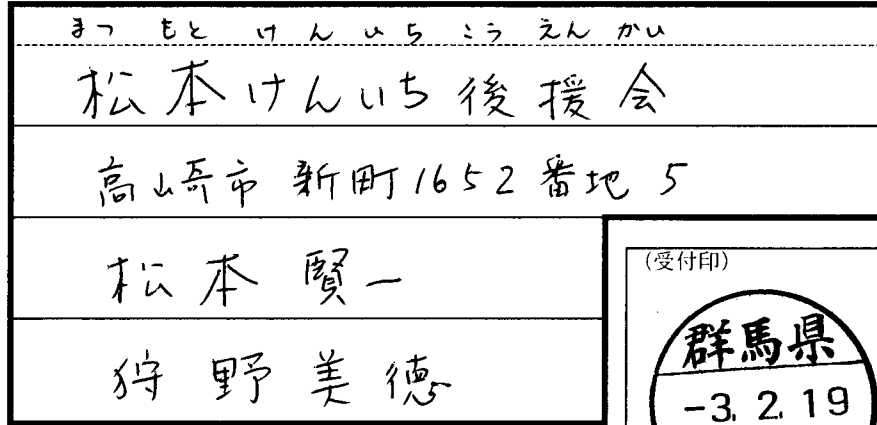 まつもとけんいちこうえんかい
松本けんいち後援会
高崎市新町1652番地5
松本賢一
狩野美徳
(受付印)
群馬県
-3.2.19